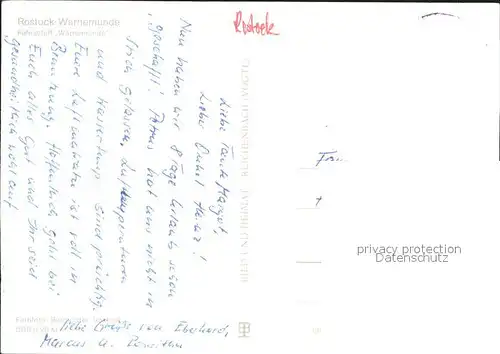 Rostock-Warnemünde
Fährschiff „Warnemünde"
Rostock
Liebe Tante Margot,
Lieber Onkel Heinz!
Nun haben wir 8 Tage Urlaub schon
„geschafft". Petrus hat uns nicht im
Stich gelassen. Lufttemperaturen
und Wassertemp. sind prächtig.
Eure Luftmatratze ist voll in
Benutzung. Hoffentlich geht bei
Euch alles gut und Ihr seid
gesundheitlich wohlauf
liebe Grüße von Eberhard,
Marcus u.
BILD UND HEIMAT REICHENBACH (VOGTL)
privacy protection
Datenschutz